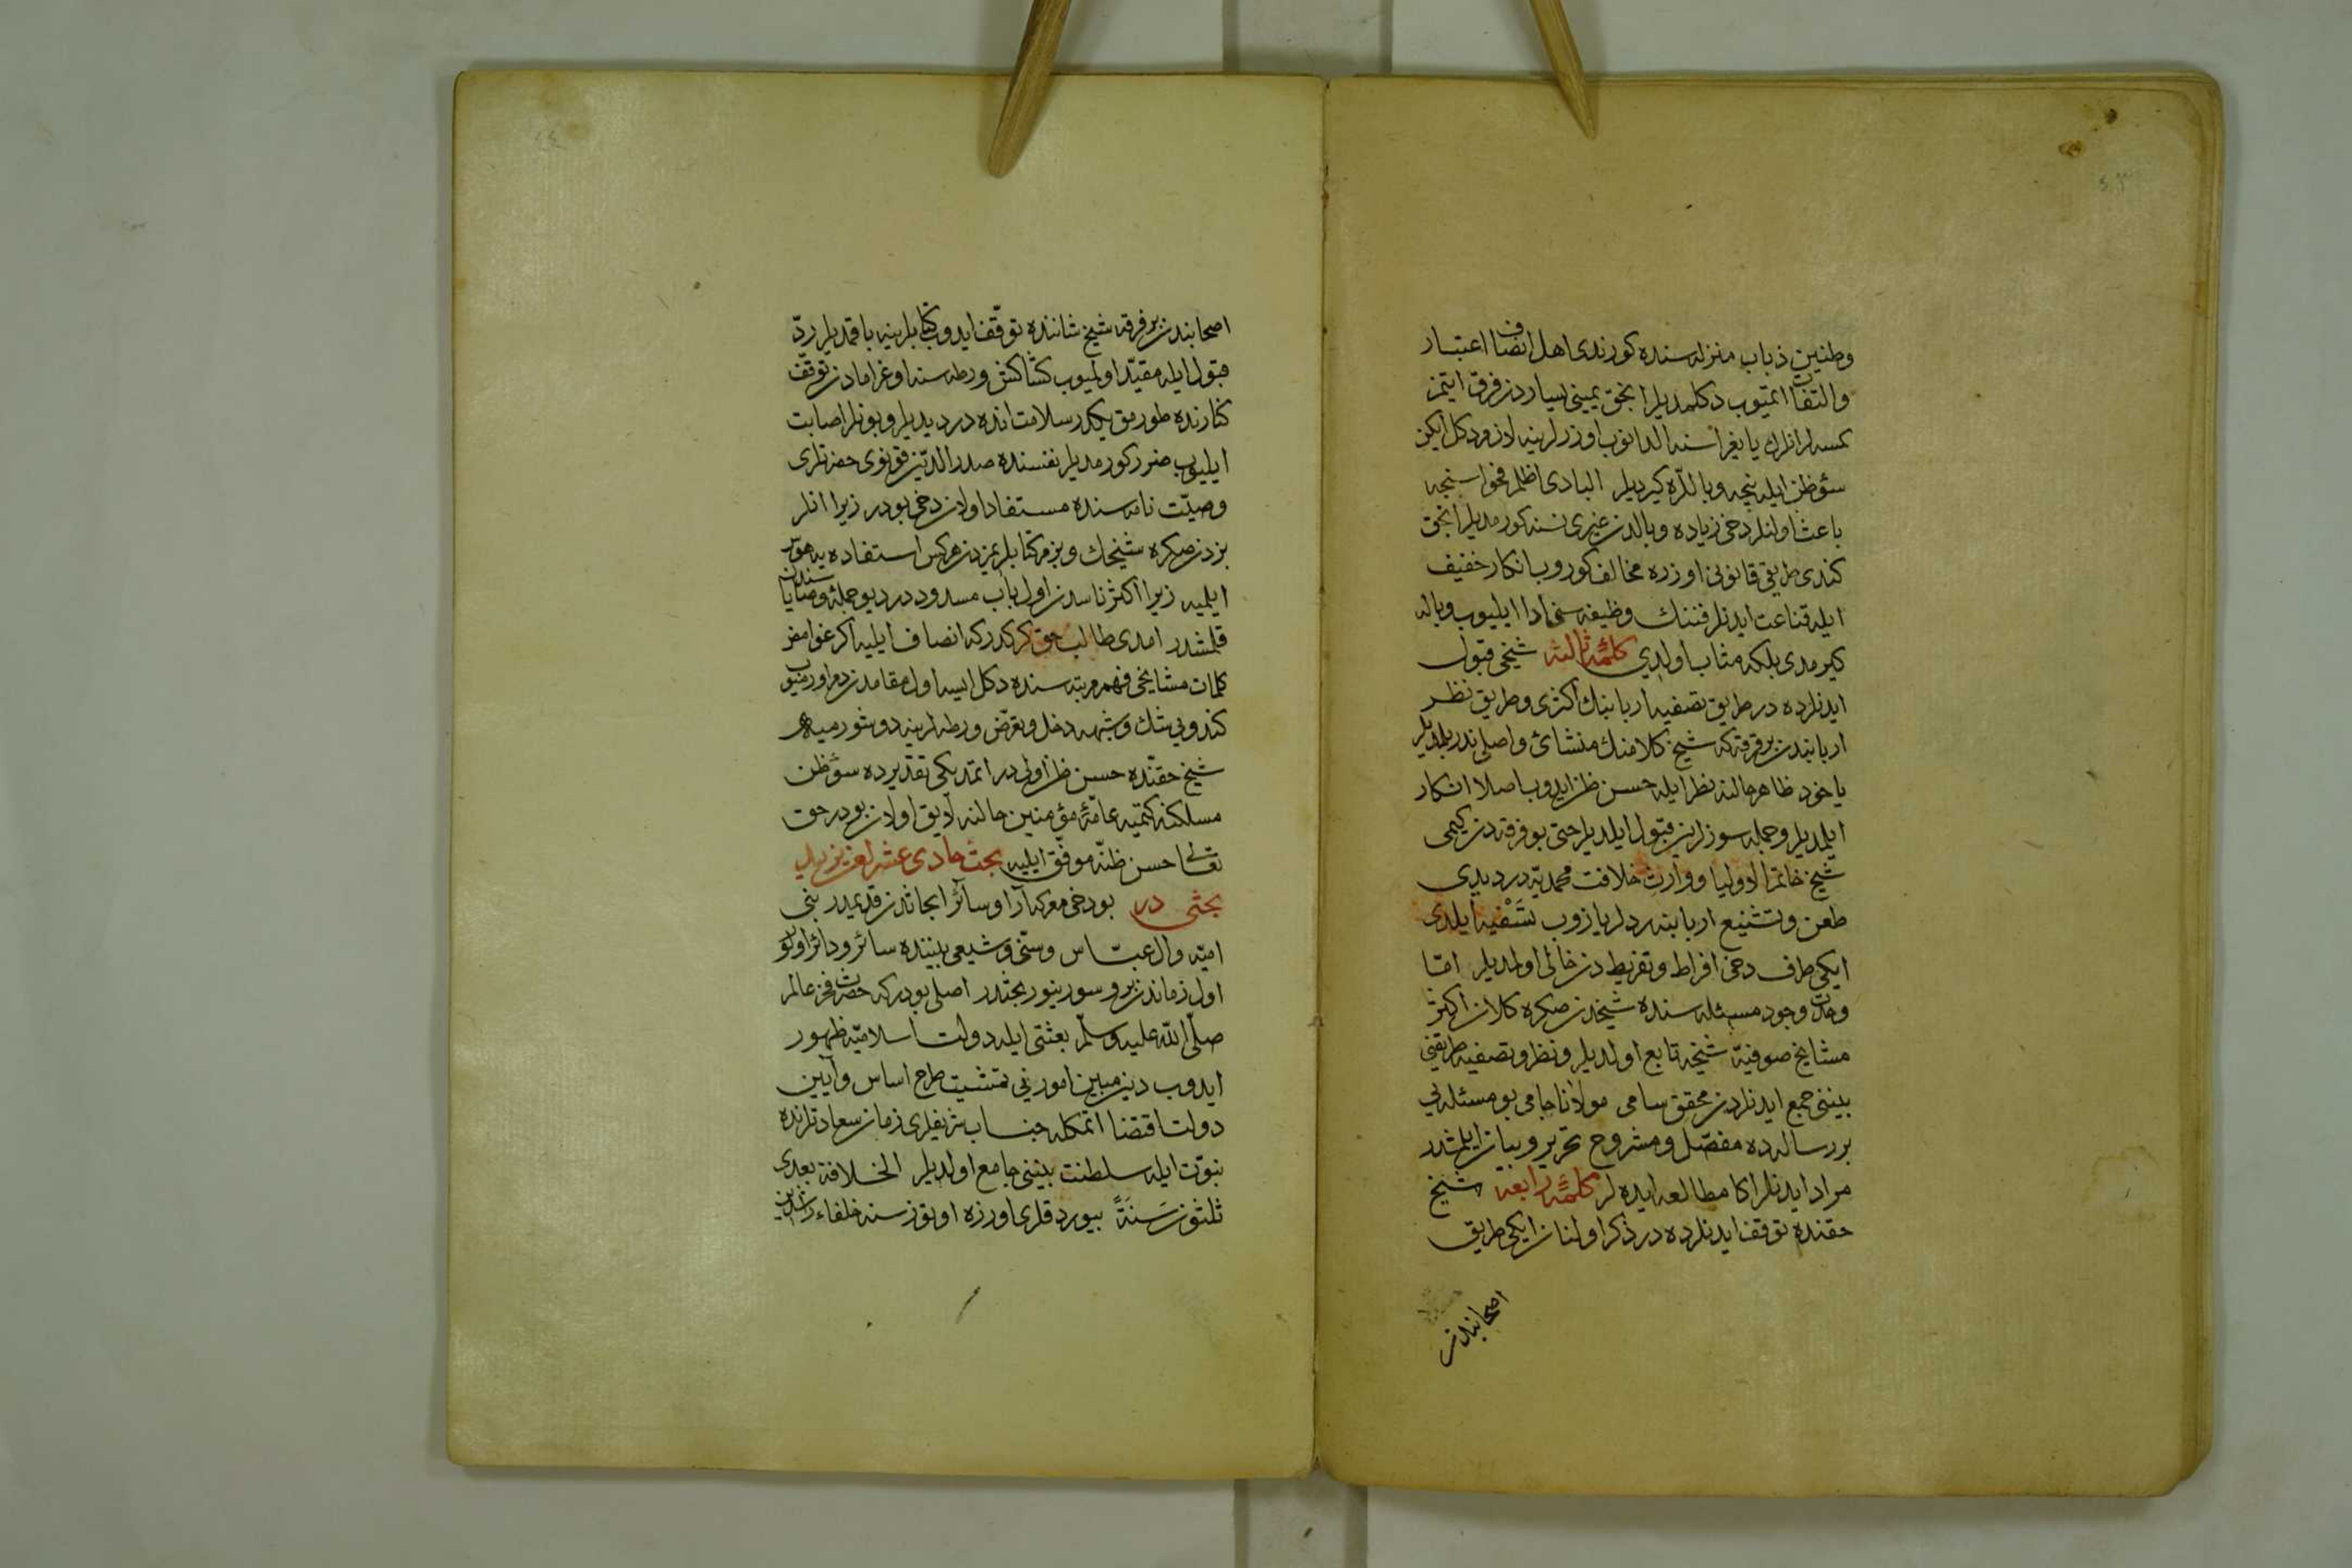 وطنین ذباب منزله سنده کورندی اهل انصاف اعتبار
والتفات ایتمیوب دکلمدیلر انجق یمینی یساردن فرق ایتمز
کمسه لر انلرك یایغراسنه الدانوب اوزرلرینه لازم دکل ایکن
سؤظن ایله نیجه وباللره کیردیلر البادی اظلم فحواسنجه
باعث اولنلر دخی زیاده وبالدن غیری نسنه کورمدیلر انجق
کندی طریقی قانونی اوزره مخالف کوروب انکار خفیف
ایله قناعت ایدنلر فننك وظیفه سنی ادا ایلیوب وباله
کیرمدی بلکه مثاب اولدی کلمۀ ثالثه شیخی قبول
ایدنلرده در طریق تصفیه اربابنك اکثری وطریق نظر
اربابندن بر فرقه که شیخ کلامنك منشائ واصلی ندر بلدیلر
یاخود ظاهر حالنه نظر ایله حسن ظن ایدوب اصلا انکار
ایلمدیلر وجمله سوزلرین قبول ایلدیلر حتی بو فرقه دن کیمی
شیخ خاتم الاولیا ووارث خلافت محمدیّه در دیدی
طعن وتشنیع اربابنه ردلر یازوب تَسْفیه ایلدی
ایکی طرف دخی افراط وتفریط دن خالی اولمدیلر امّا
وحدت وجود مسئله سنده شیخدن صکره کلان اکثر
مشایخ صوفیّه شیخه تابع اولدیلر ونظر وتصفیه طریقنی
بیننی جمع ایدنلردن محقق سامی مولانا جامی بو مسئله یی
بر رساله ده مفصّل ومشروح تحریر وبیان ایلمشدر
مراد ایدنلر اکا مطالعه ایده لر کلمۀ رابعه شیخ
حقنده توقف ایدنلرده در ذکر اولنان ایکی طریق
اصحابندن
اصحابندن بر فرقه شیخ شاننده توقّف ایدوب کتابلرینه باقمدیلر ردّ
قبول ایله مقیّد اولمیوب کشاکش ورطه سنه اوغرامادن توقّف
کنارنده طورمق یکدر سلامت انده در دیدیلر وبونلر اصابت
ایلیوب ضرر کورمدیلر نفسنده صدر الدّین قونوی حضرتلری
وصیّت نامه سنده مستفاد اولان دخی بودر زیرا انلر
بزدن صکره شیخك وبزم کتابلریمزدن هرکس استفاده یه هوس
ایلمیه زیرا اکثر ناسدن اول باب مسدود در دیو جملۀ وصایاسندن
قلمشدر امدی طالب حق کرکدر که انصاف ایلیه اکر غوامض
کلمات مشایخی فهم مرتبه سنده دکل ایسه اول مقامدن دم اورمیوب
کندویی شك وشبهه دخل وتعرّض ورطه لرینه دوشورمیه
شیخ حقنده حسن ظن اولی در ایتمدیکی تقدیرده سؤظن
مسلکنه کتمیه عامّۀ مؤمنین حالنه لایق اولان بودر حق
تعالی حسن ظنّه موفّق ایلیه بحث حادی عشر لعن یزید
بحثی در بو دخی معرکه آرا وسائر ابحاثدن قدیمدر بنی
امیّه وال عبّاس وسنّی وشیعی بیننده سائر ودائر اولوب
اول زماندن برو سورینور بحثدر اصلی بودر که حضرت فخر عالم
صلّی اللّه علیه وسلّم بعثتی ایله دولت اسلامیّه ظهور
ایدوب دین مبین امورینی تمشیت طرح اساس وآیین
دولت اقتضا ایتمکله جناب شریفلری زمان سعادتلرنده
نبوّت ایله سلطنت بیننی جامع اولدیلر الخلافة بعدی
ثلثون سَنَةً بیوردقلری اوزره اوتوز سنه خلفاء راشدین